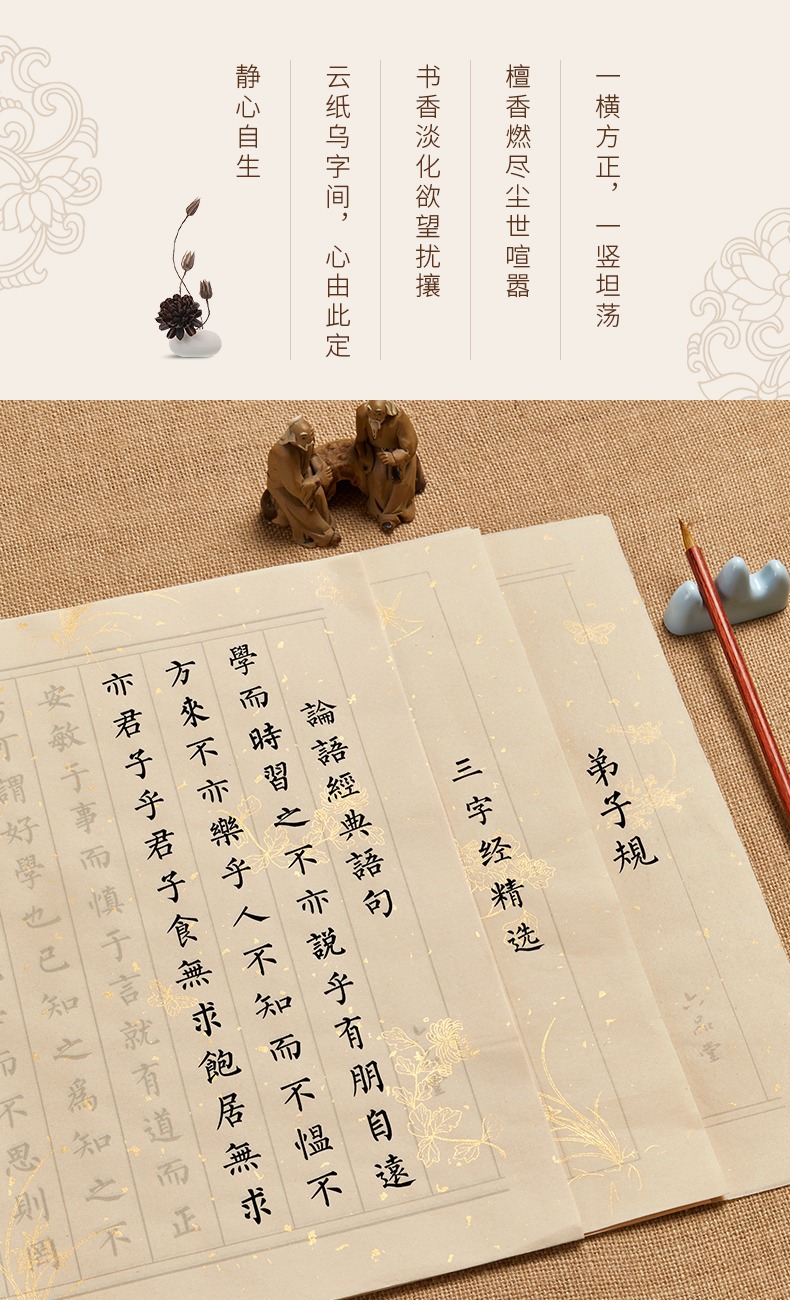 一横方正，一竖坦荡
檀香燃尽尘世喧嚣
书香淡化欲望扰攘
云纸乌字间，心由此定
静心自生
弟子規
六品堂
三字经精选
論語經典語句
學而時習之不亦説乎有朋自遠
方來不亦樂乎人不知而不愠不
亦君子乎君子食無求飽居無求
安敏于事而慎于言就有道而正
可謂好學也已知之爲知之不
而不思則罔